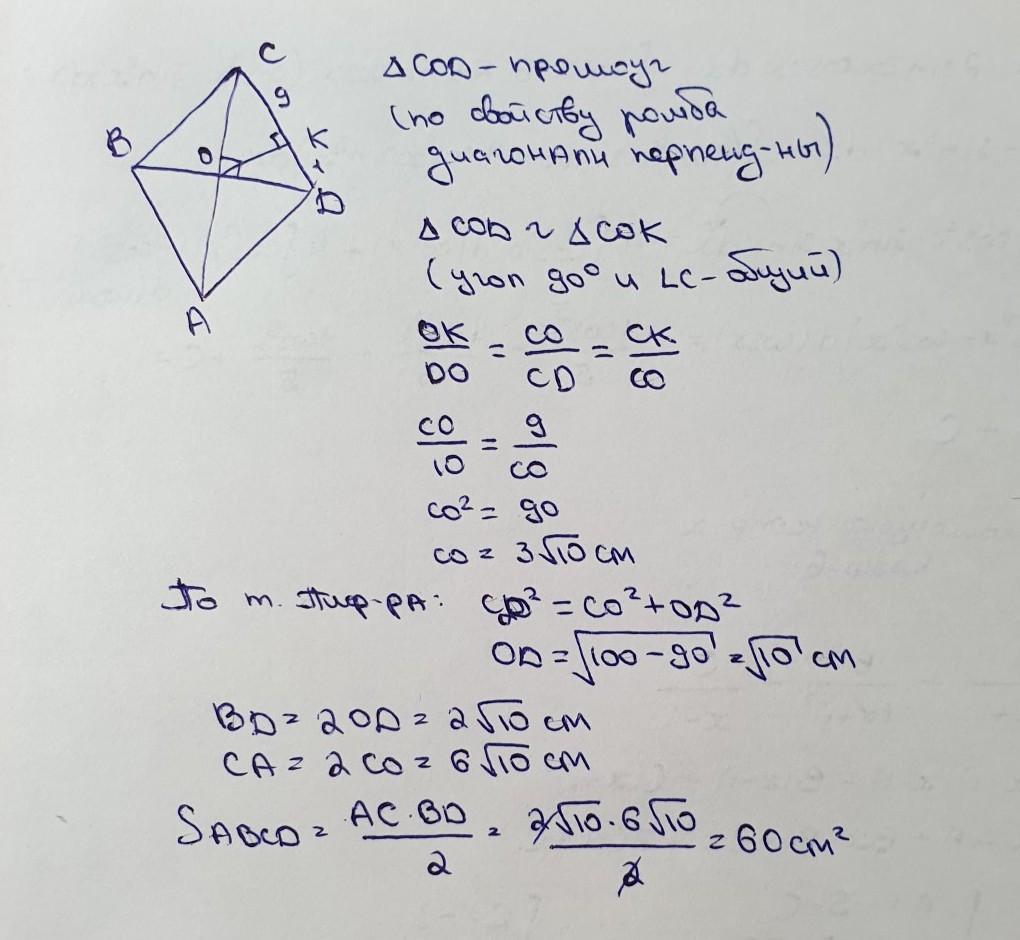 C
9
B
O
K
1
D
A
Δ COD - прямоуг
(по свойству ромба
диагонали перпенд-ны)
Δ COD ~ Δ COK
(угол 90° и ∠C - общий)
OK/DO = CO/CD = CK/CO
CO/10 = 9/CO
CO² = 90
CO = 3√10 см
По т. Пиф-ра: CD² = CO² + OD²
OD = √100 - 90 = √10 см
BD = 2 OD = 2√10 см
CA = 2 CO = 6√10 см
SABCD = AC · BD / 2 = 2√10 · 6√10 / 2 = 60 см²